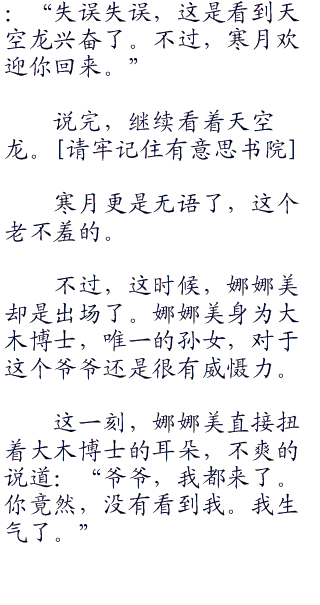 ：“失误失误，这是看到天
空龙兴奋了。不过，寒月欢
迎你回来。”
说完，继续看着天空
龙。[请牢记住有意思书院]
寒月更是无语了，这个
老不羞的。
不过，这时候，娜娜美
却是出场了。娜娜美身为大
木博士，唯一的孙女，对于
这个爷爷还是很有威慑力。
这一刻，娜娜美直接扭
着大木博士的耳朵，不爽的
说道：“爷爷，我都来了。
你竟然，没有看到我。我生
气了。”